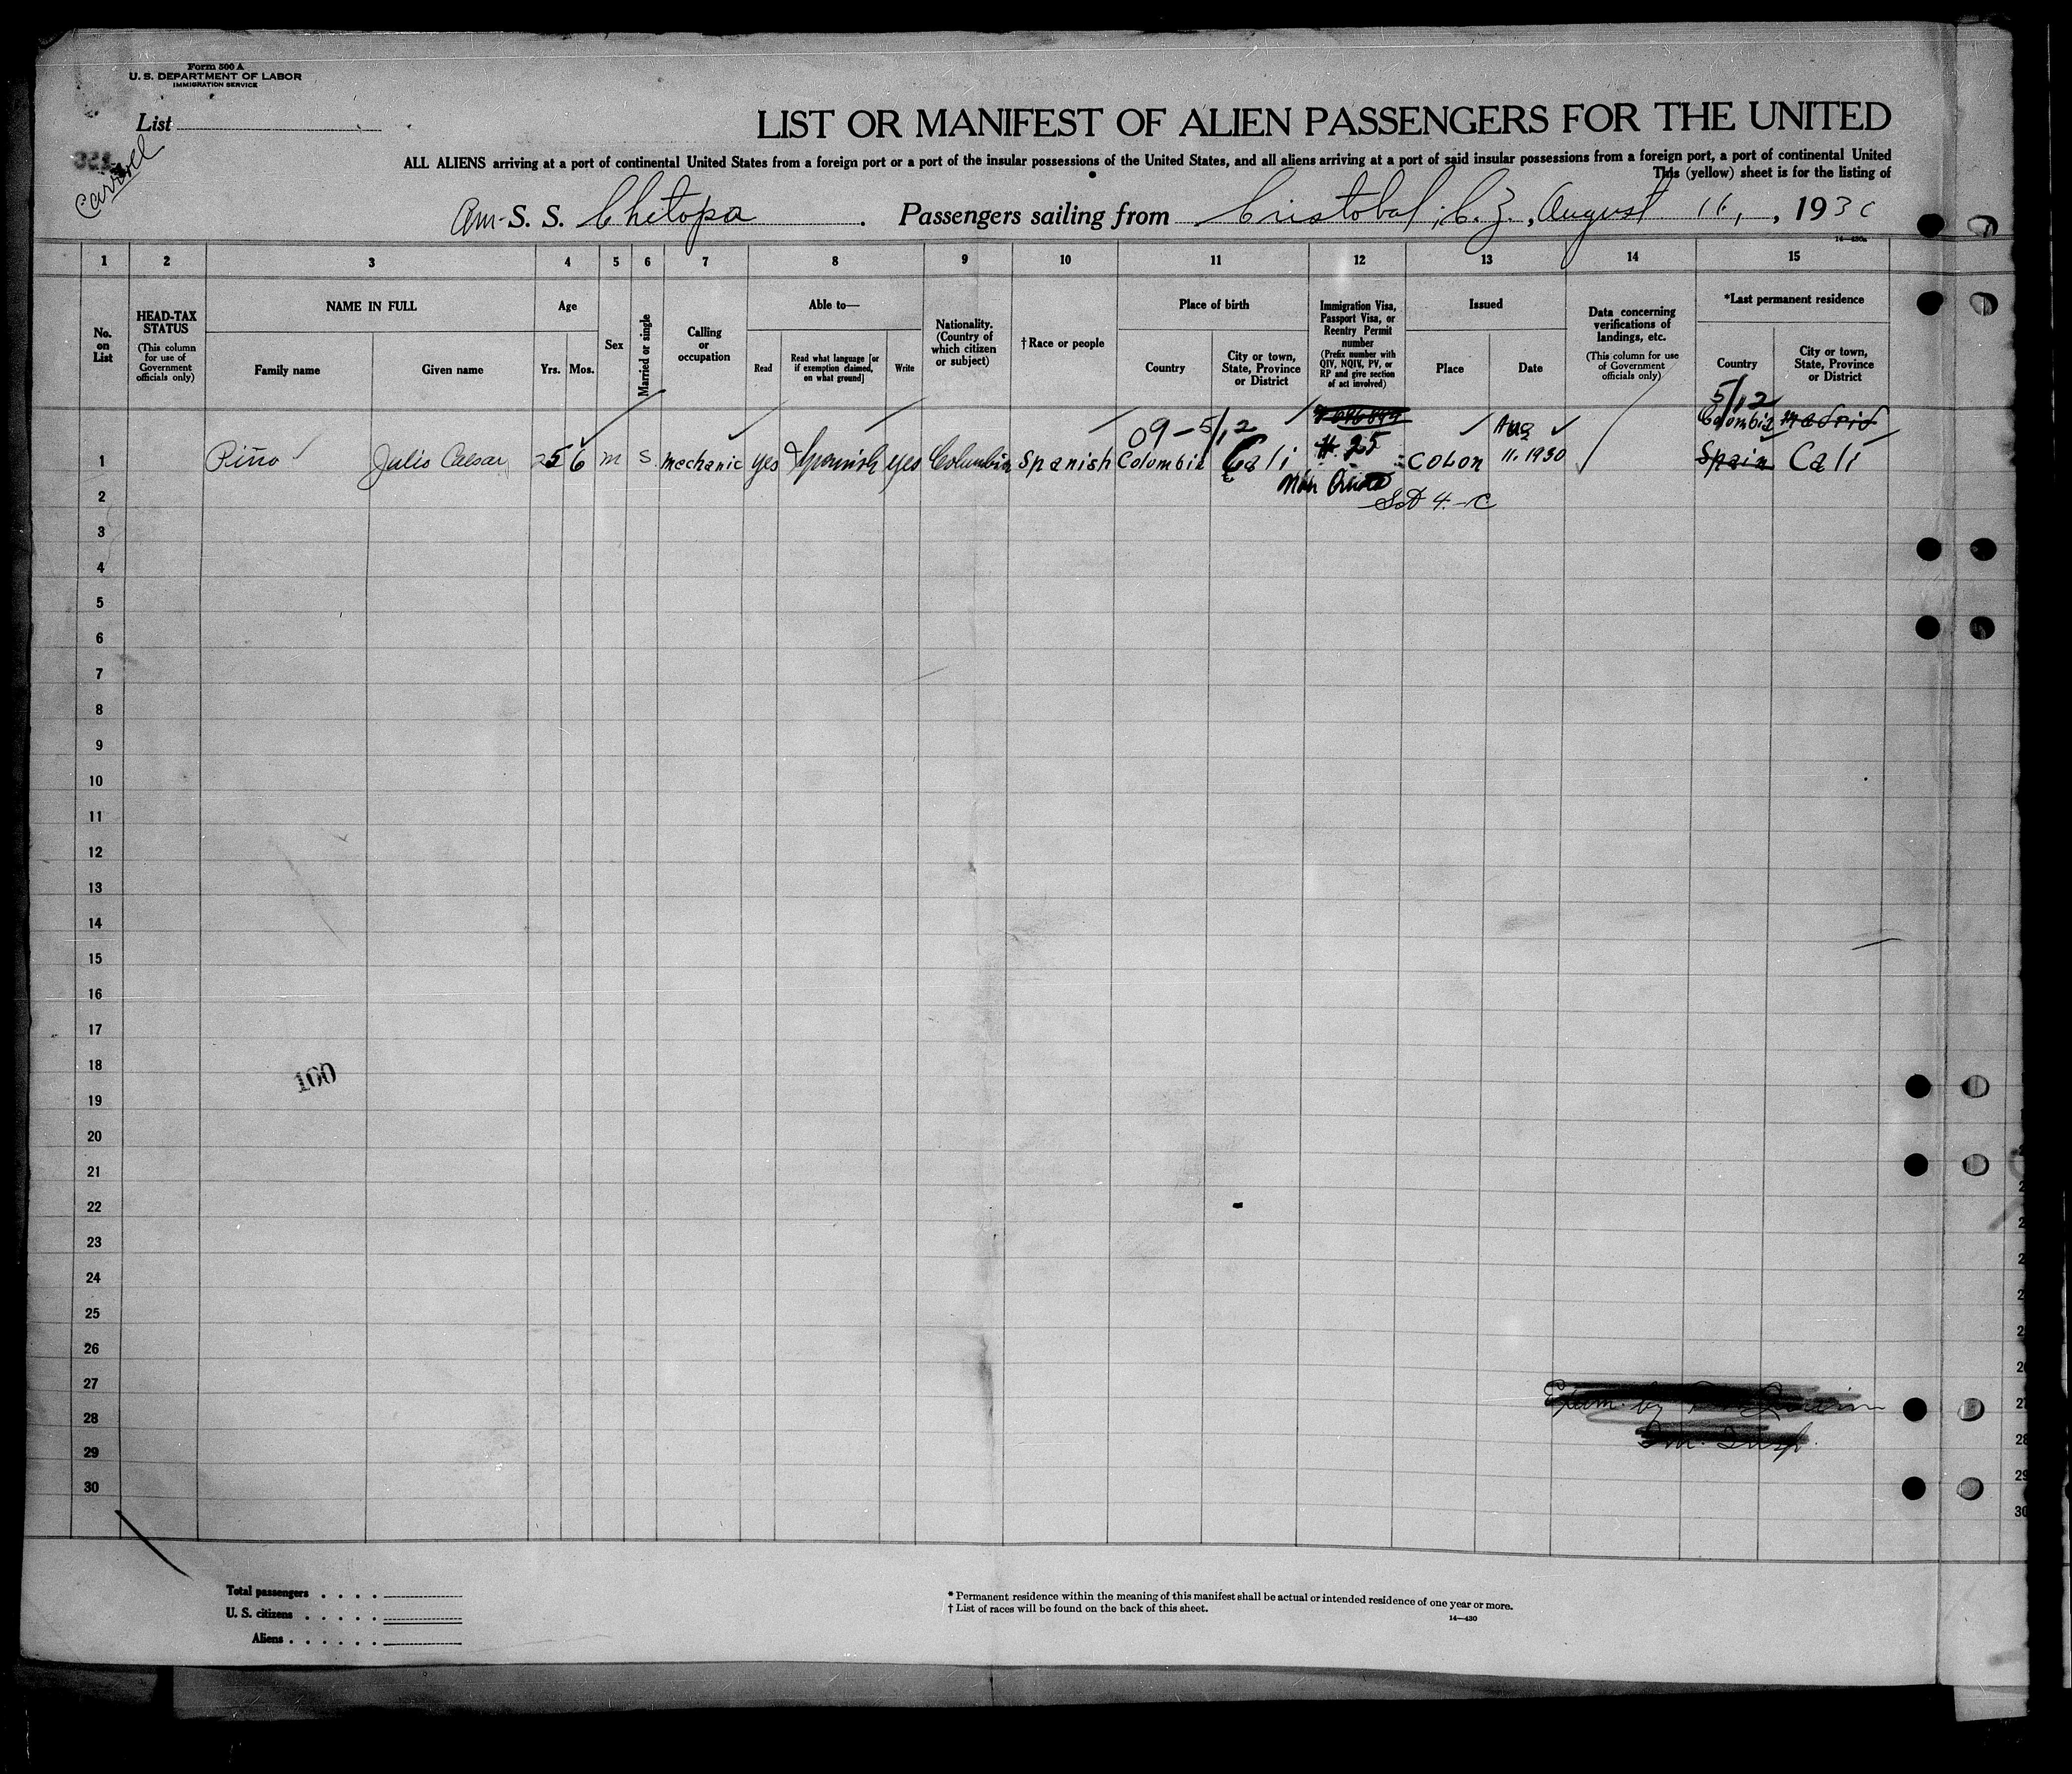 Form 500 A
U. S. DEPARTMENT OF LABOR
IMMIGRATION SERVICE
List
LIST OR MANIFEST OF ALIEN PASSENGERS FOR THE UNITED
ALL ALIENS arriving at a port of continental United States from a foreign port or a port of the insular possessions of the United States, and all aliens arriving at a port of said insular possessions from a foreign port, a port of continental United
This (yellow) sheet is for the listing of
Am- S. S. Chetopa . Passengers sailing from Cristobal, C.Z., August 16, , 1930
14—430a
1 2 3 4 5 6 7 8 9 10 11 12 13 14 15
No. on List
HEAD-TAX STATUS
(This column for use of Government officials only)
NAME IN FULL
Family name
Given name
Age
Yrs.
Mos.
Sex
Married or single
Calling or occupation
Able to—
Read
Read what language [or if exemption claimed, on what ground]
Write
Nationality. (Country of which citizen or subject)
†Race or people
Place of birth
Country
City or town, State, Province or District
Immigration Visa, Passport Visa, or Reentry Permit number
(Prefix number with QIV, NQIV, PV, or RP and give section of act involved)
Issued
Place
Date
Data concerning verifications of landings, etc.
(This column for use of Government officials only)
*Last permanent residence
Country
City or town, State, Province or District
5/12
09-5/12
Aug
Colombia Madrid
1 Piño Julio Caesar 25 6 m S mechanic yes Spanish yes Columbia Spanish Colombia Cali # 25 COLON 11. 1930 Spain Cali
2
3
4
5
6
7
8
9
10
11
12
13
14
15
16
17
18
100
19
20
21
22
23
24
25
26
27
28
29
30
Total passengers
U. S. citizens
Aliens
* Permanent residence within the meaning of this manifest shall be actual or intended residence of one year or more.
† List of races will be found on the back of this sheet.
14—430